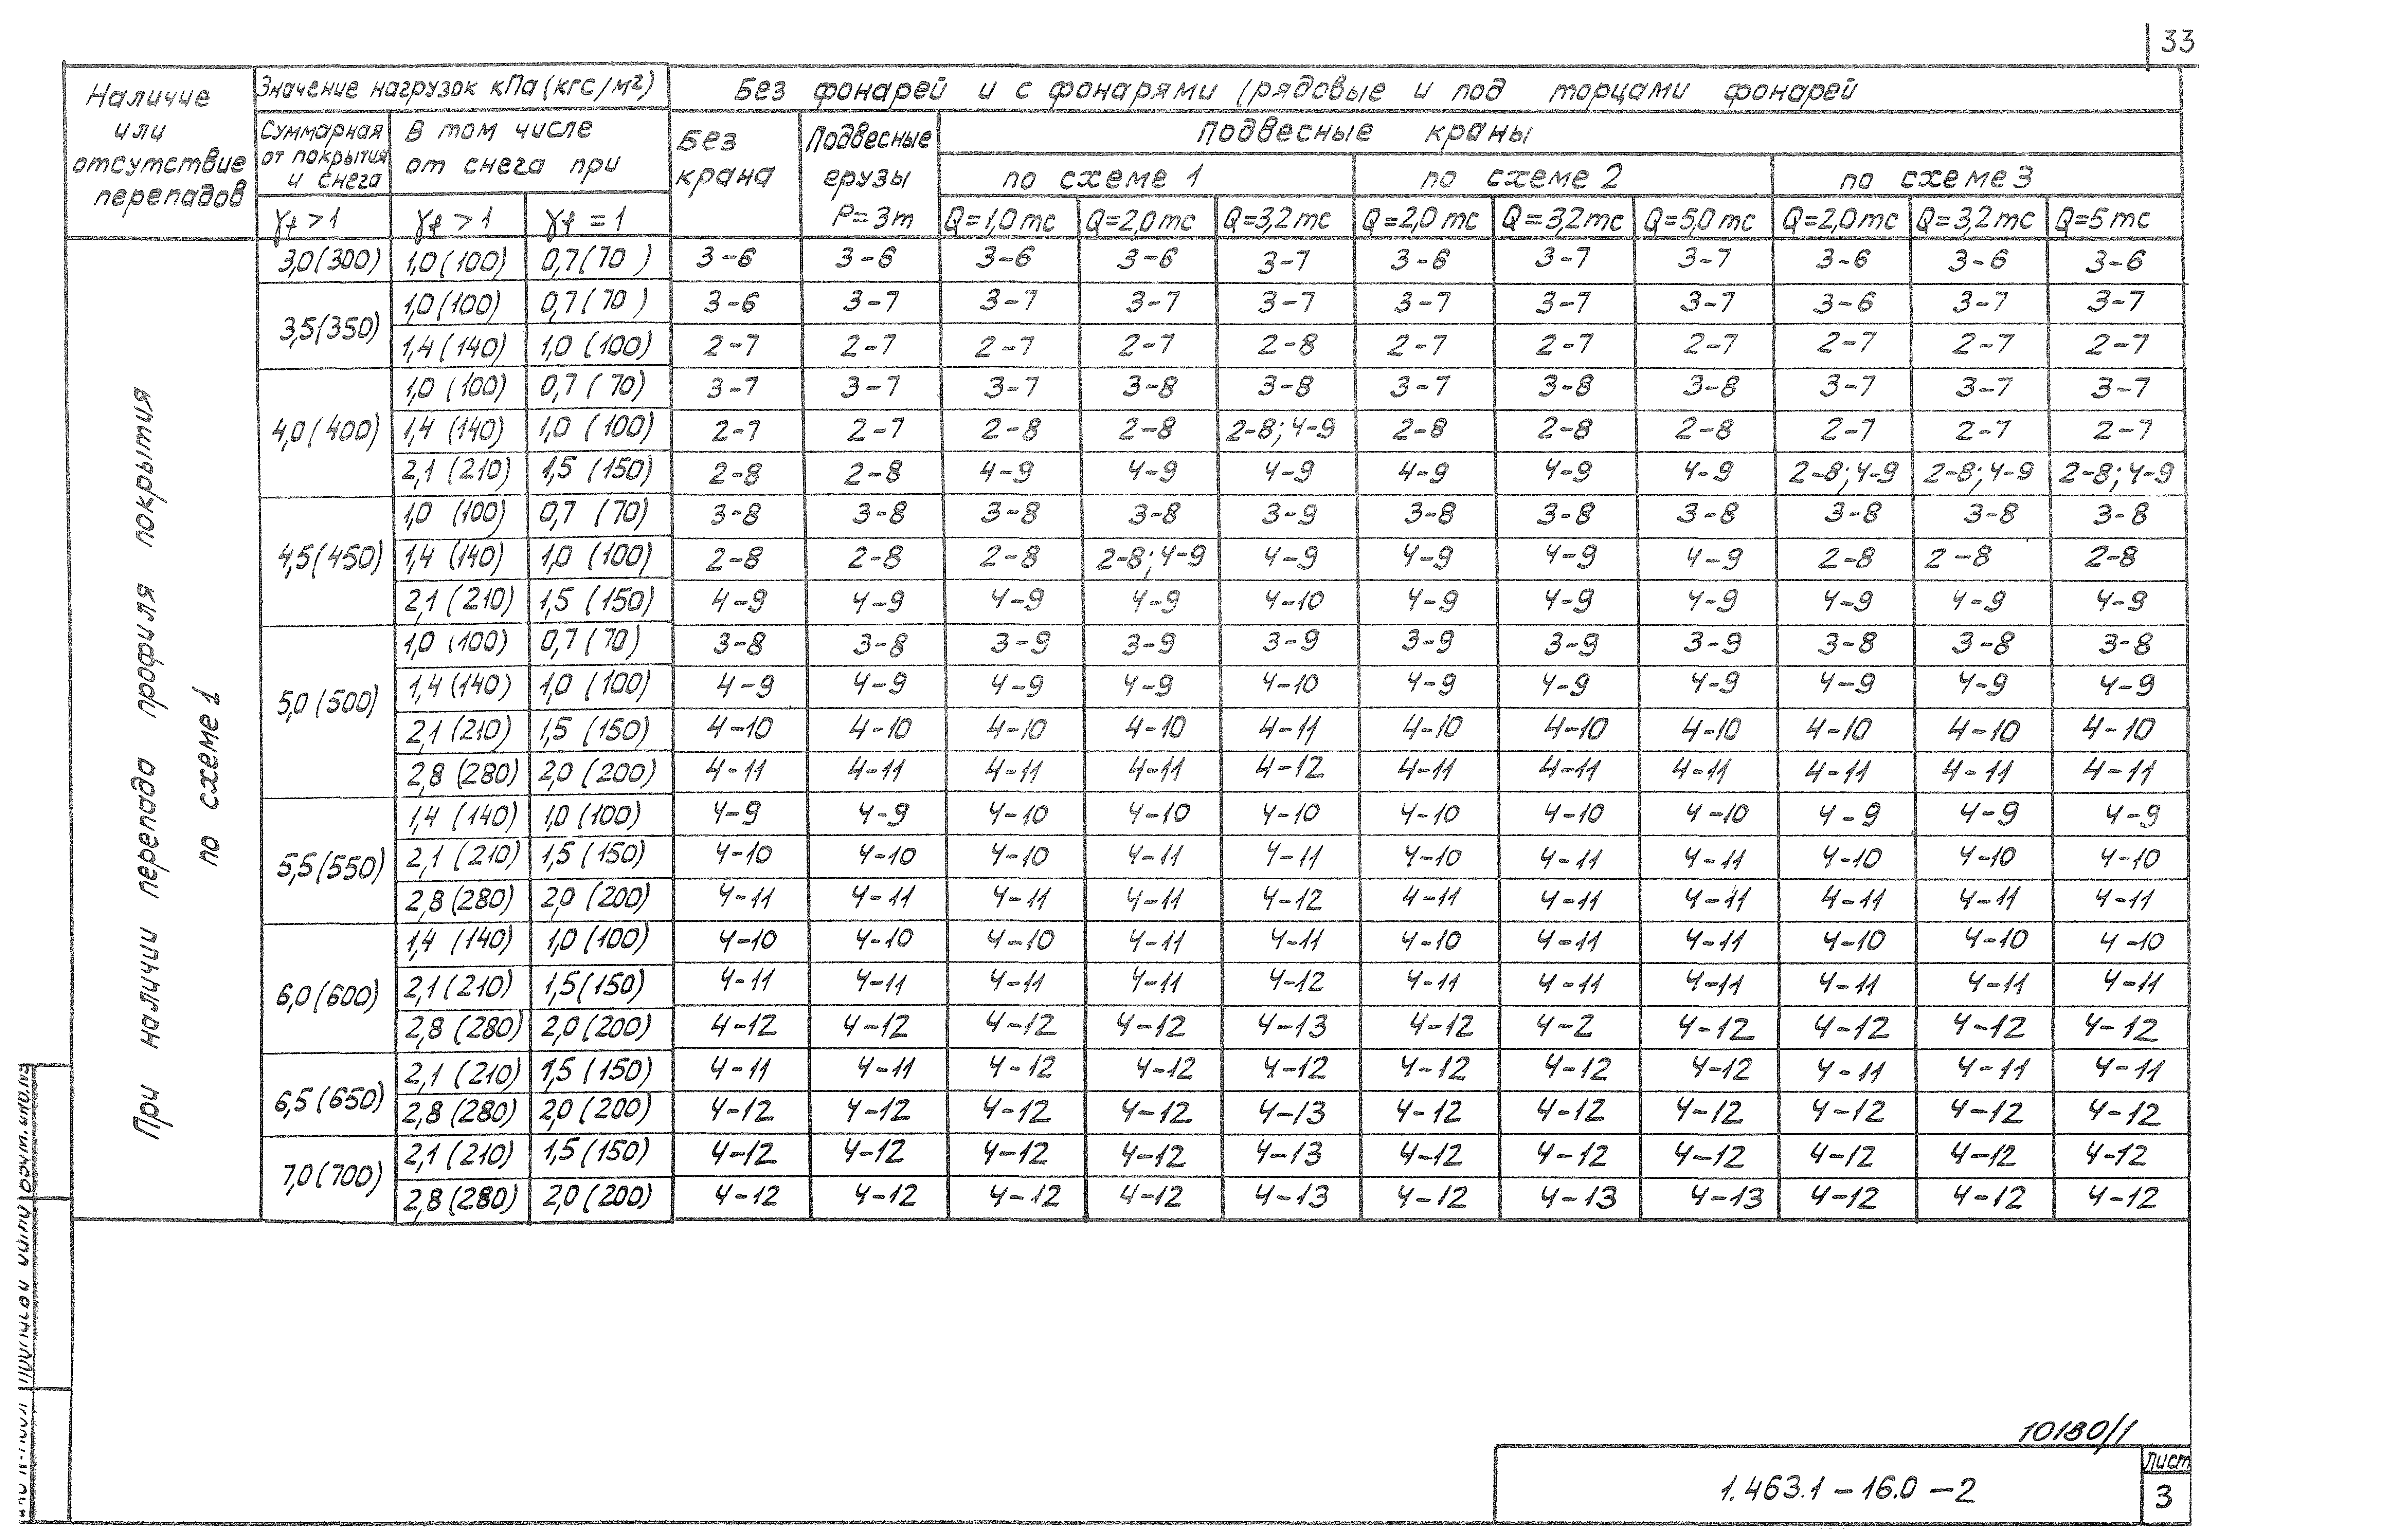 33
Наличие или отсутствие перепадов
Значение нагрузок кПа (кгс/м2)
Без фонарей и с фонарями (рядовые и под торцами фонарей
Суммарная от покрытия и снега
В том числе от снега при
Без крана
Подвесные грузы P=3т
Подвесные краны
по схеме 1 по схеме 2 по схеме 3
γf >1 γf >1 γf =1 Q=1,0тс Q=2,0тс Q=3,2тс Q=2,0тс Q=3,2тс Q=5,0тс Q=2,0тс Q=3,2тс Q=5тс
При наличии перепада профиля покрытия по схеме 1
3,0(300) 1,0(100) 0,7(70) 3-6 3-6 3-6 3-6 3-7 3-6 3-7 3-7 3-6 3-6 3-6
3,5(350) 1,0(100) 0,7(70) 3-6 3-7 3-7 3-7 3-7 3-7 3-7 3-7 3-6 3-7 3-7
1,4(140) 1,0(100) 2-7 2-7 2-7 2-7 2-8 2-7 2-7 2-7 2-7 2-7 2-7
4,0(400) 1,0(100) 0,7(70) 3-7 3-7 3-7 3-8 3-8 3-7 3-8 3-8 3-7 3-7 3-7
1,4(140) 1,0(100) 2-7 2-7 2-8 2-8 2-8;4-9 2-8 2-8 2-8 2-7 2-7 2-7
2,1(210) 1,5(150) 2-8 2-8 4-9 4-9 4-9 4-9 4-9 4-9 2-8;4-9 2-8;4-9 2-8;4-9
4,5(450) 1,0(100) 0,7(70) 3-8 3-8 3-8 3-8 3-9 3-8 3-8 3-8 3-8 3-8 3-8
1,4(140) 1,0(100) 2-8 2-8 2-8 2-8;4-9 4-9 4-9 4-9 4-9 2-8 2-8 2-8
2,1(210) 1,5(150) 4-9 4-9 4-9 4-9 4-10 4-9 4-9 4-9 4-9 4-9 4-9
5,0(500) 1,0(100) 0,7(70) 3-8 3-8 3-9 3-9 3-9 3-9 3-9 3-9 3-8 3-8 3-8
1,4(140) 1,0(100) 4-9 4-9 4-9 4-9 4-10 4-9 4-9 4-9 4-9 4-9 4-9
2,1(210) 1,5(150) 4-10 4-10 4-10 4-10 4-11 4-10 4-10 4-10 4-10 4-10 4-10
2,8(280) 2,0(200) 4-11 4-11 4-11 4-11 4-12 4-11 4-11 4-11 4-11 4-11 4-11
5,5(550) 1,4(140) 1,0(100) 4-9 4-9 4-10 4-10 4-10 4-10 4-10 4-10 4-9 4-9 4-9
2,1(210) 1,5(150) 4-10 4-10 4-10 4-11 4-11 4-10 4-11 4-11 4-10 4-10 4-10
2,8(280) 2,0(200) 4-11 4-11 4-11 4-11 4-12 4-11 4-11 4-11 4-11 4-11 4-11
6,0(600) 1,4(140) 1,0(100) 4-10 4-10 4-10 4-11 4-11 4-10 4-11 4-11 4-10 4-10 4-10
2,1(210) 1,5(150) 4-11 4-11 4-11 4-11 4-12 4-11 4-11 4-11 4-11 4-11 4-11
2,8(280) 2,0(200) 4-12 4-12 4-12 4-12 4-13 4-12 4-2 4-12 4-12 4-12 4-12
6,5(650) 2,1(210) 1,5(150) 4-11 4-11 4-12 4-12 4-12 4-12 4-12 4-12 4-11 4-11 4-11
2,8(280) 2,0(200) 4-12 4-12 4-12 4-12 4-13 4-12 4-12 4-12 4-12 4-12 4-12
7,0(700) 2,1(210) 1,5(150) 4-12 4-12 4-12 4-12 4-13 4-12 4-12 4-12 4-12 4-12 4-12
2,8(280) 2,0(200) 4-12 4-12 4-12 4-12 4-13 4-12 4-13 4-13 4-12 4-12 4-12
10180/1
1.463.1-16.0-2
Лист
3